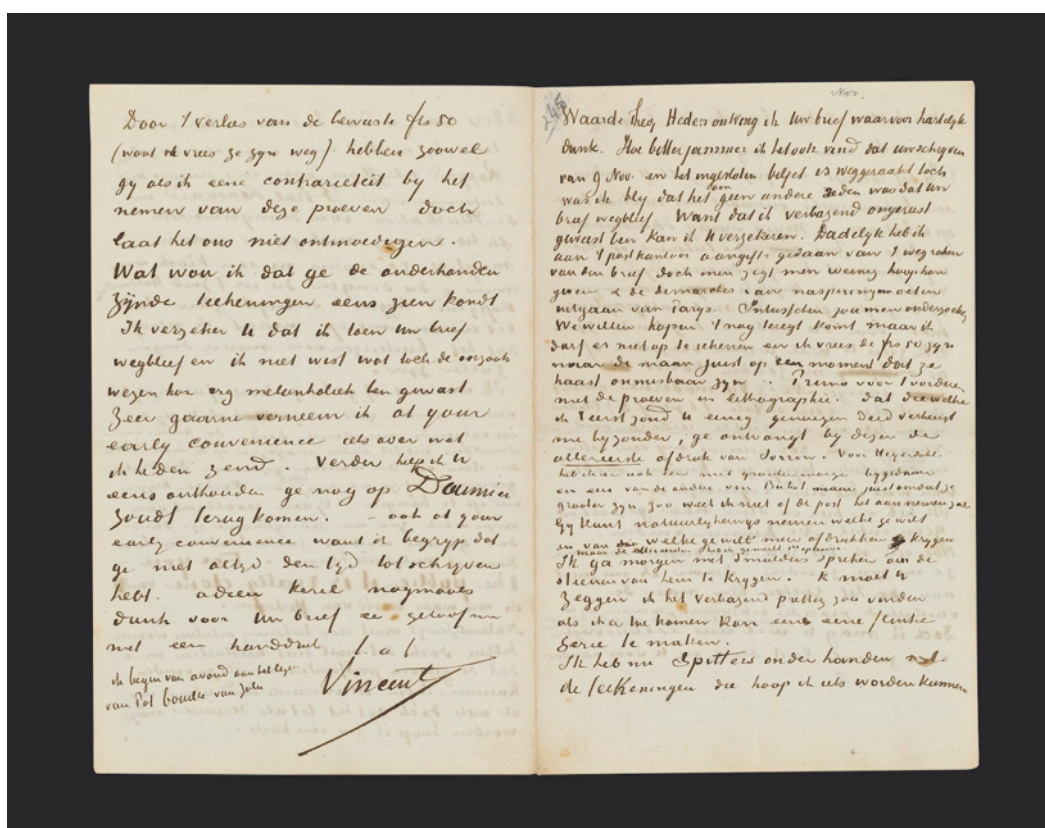 Door 't verlies van de bewuste frs 50
(want ik vrees ze zyn weg) hebben zoowel
gy als ik eene contrarieteit by het
nemen van deze proeven doch
laat het ons niet ontmoedigen.
Wat wou ik dat ge de onderhanden
zynde teekeningen eens zien kondt
Ik verzeker U dat ik toen Uw brief
wegbleef en ik niet wist wat toch de oorzaak
wezen kon erg melankoliek ben geweest
Zeer gaarne verneem ik at your
early convenience iets over wat
ik heden zend. Verder help ik U
eens onthouden ge nog op Daumier
zoudt terugkomen. – ook at your
early convenience want ik begryp dat
ge niet altyd den tyd tot schryven
hebt. adieu kerel nogmaals
dank voor Uw brief en geloof me
met een handdruk t. à t.
Vincent
ik begin van avond aan het lezen
van Pot bouille van Zola
Nov.
245
Waarde Theo, Heden ontving ik Uw brief waarvoor hartelyk
dank. Hoe bitter jammer ik het ook vind dat Uw schryven
van 9 Nov. en het ingesloten biljet is weggeraakt toch
was ik bly dat het om geen andere reden was dat Uw
brief wegbleef. Want dat ik verbazend ongerust
geweest ben kan ik U verzekeren. Dadelyk heb ik
aan 't postkantoor aangifte gedaan van 't wegraken
van den brief doch men zegt men weinig hoop kan
geven & de demarches van nasporing moeten
uitgaan van Parys. Intusschen zou men onderzoeken
We willen hopen 't nog teregt komt maar ik
durf er niet op te rekenen en ik vrees de frs 50 zyn
naar de maan juist op een moment dat ze
haast onmisbaar zyn .. Primo voor 't vorderen
met de proeven in lithographie. dat die welke
ik 't eerst zond U eenig genoegen deed verheugt
me byzonder, ge ontvangt by dezen de
allereerste afdruk van Sorrow. Voor Heyerdahl
heb ik er ook een met groote marge bygedaan
en een van de andere voor Buhot maar juist omdat ze
grooter zyn zoo weet ik niet of de post het aannemen zal
Gy kunt natuurlykerwys nemen welke ge wilt
en van welke ge wilt meer afdrukken krygen
maar de allereersten heb ik gemerkt 1re epreuve.
Ik ga morgen met Smulders spreken om de
steenen van hem te krygen. Ik moet U
zeggen ik het verbazend prettig zou vinden
als ik er toe komen kon eens eene flinke
serie te maken.
Ik heb nu Spitters onder handen
de teekeningen die hoop ik iets worden kunnen